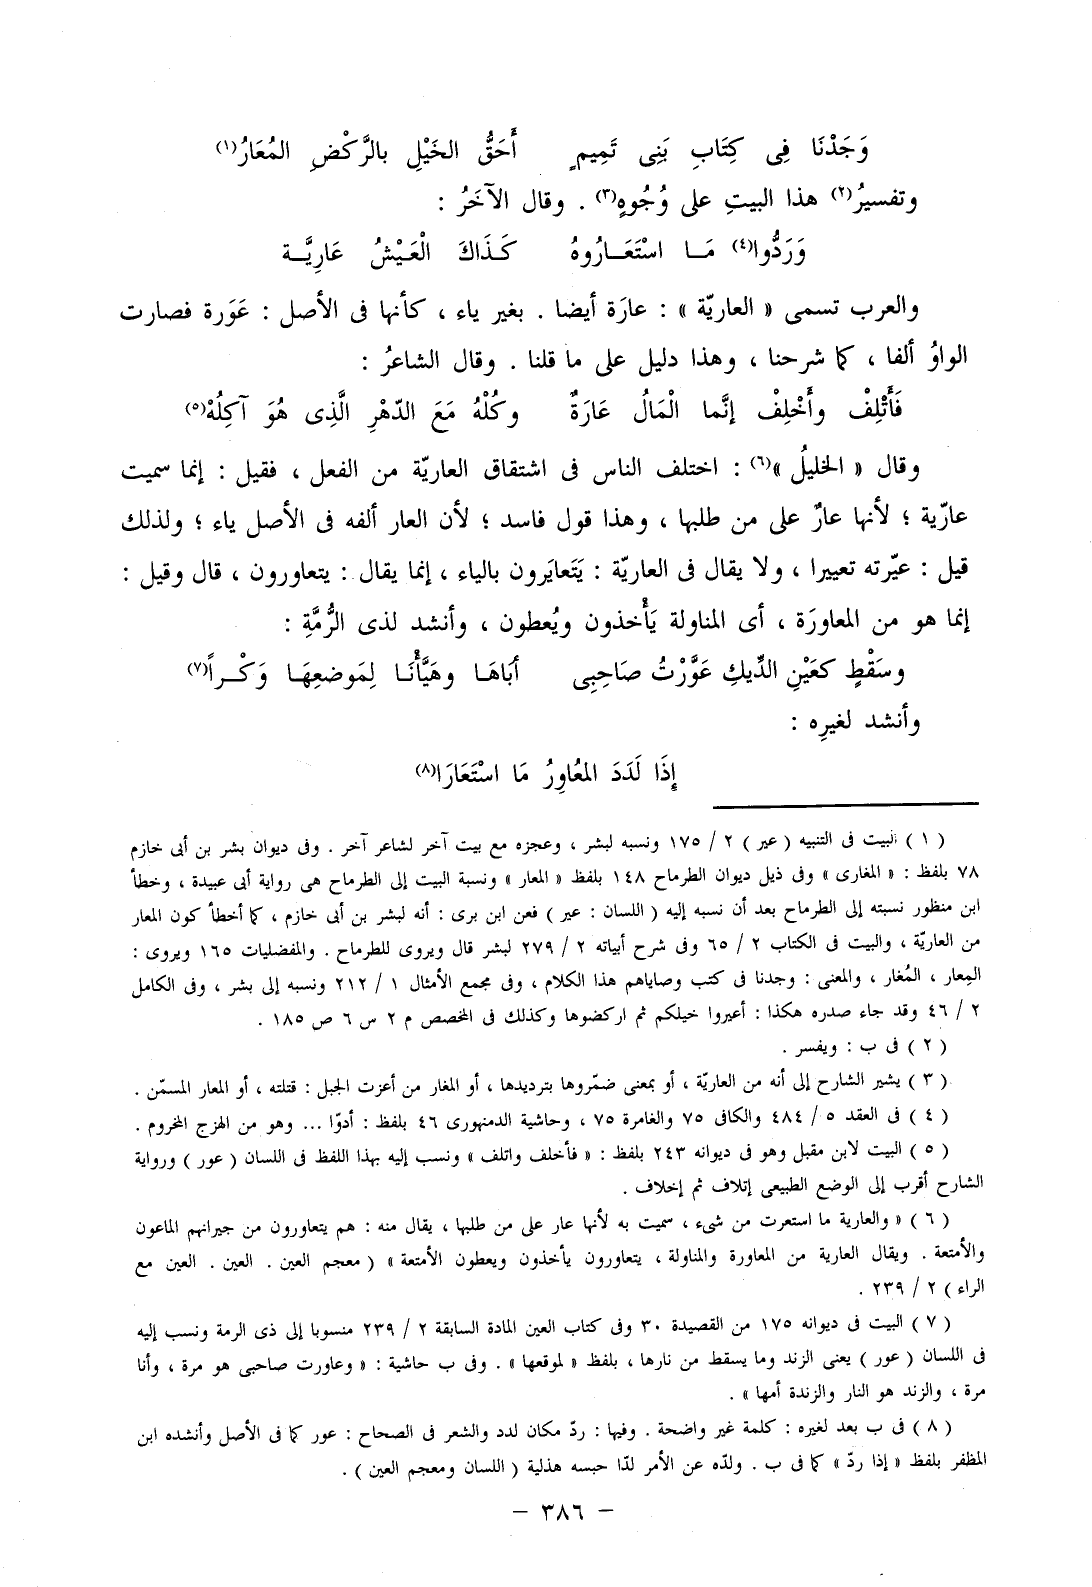 وَجَدْنَا فِى كِتَابِ بَنِى تَمِيمٍ أَحَقُّ الخَيْلِ بالرَّكْضِ المُعَارُ(١)
وتفسيرُ(٢) هذا البيتِ على وُجُوهٍ(٣) . وقال الآخَرُ :
وَرَدُّوا(٤) مَـا اسْتَعَـارُوهُ كَذَاكَ الْعَيْشُ عَارِيَّـة
والعرب تسمى « العاريّة » : عارَة أيضا . بغير ياء ، كأنها فى الأصل : عَوَرة فصارت
الواوُ ألفا ، كما شرحنا ، وهذا دليل على ما قلنا . وقال الشاعرُ :
فَأَتْلِفْ وأَخْلِفْ إنَّما الْمَالُ عَارَةٌ وكُلْهُ مَعَ الدّهْرِ الَّذِى هُوَ آكِلُهْ(٥)
وقال « الخليلُ »(٦) : اختلف الناس فى اشتقاق العاريّة من الفعل ، فقيل : إنما سميت
عارّية ؛ لأنها عارٌ على من طلبها ، وهذا قول فاسد ؛ لأن العار ألفه فى الأصل ياء ؛ ولذلك
قيل : عيّرته تعييرا ، ولا يقال فى العاريّة : يَتَعايَرون بالياء ، إنما يقال : يتعاورون ، قال وقيل :
إنما هو من المعاورَة ، أى المناولة يَأْخذون ويُعطون ، وأنشد لذى الرُّمَّةِ :
وسَقْطٍ كعَيْنِ الدِّيكِ عَوَّرْتُ صَاحِبِى أبَاهَـا وهَيَّأْنَـا لِمَوضعِهَـا وَكْـراً(٧)
وأنشد لغيرِه :
إِذَا لَدَدَ المعُاوِرُ مَا اسْتَعَارَا(٨)
( ١ ) البيت فى التنبيه ( عير ) ٢ / ١٧٥ ونسبه لبشر ، وعجزه مع بيت آخر لشاعر آخر . وفى ديوان بشر بن أبى خازم
٧٨ بلفظ : « المغارى » وفى ذيل ديوان الطرماح ١٤٨ بلفظ « المعار » ونسبة البيت إلى الطرماح هى رواية أبى عبيدة ، وخطأ
ابن منظور نسبته إلى الطرماح بعد أن نسبه إليه ( اللسان : عير ) فعن ابن برى : أنه لبشر بن أبى خازم ، كما أخطأ كون المعار
من العاريّة ، والبيت فى الكتاب ٢ / ٦٥ وفى شرح أبياته ٢ / ٢٧٩ لبشر قال ويروى للطرماح . والمفضليات ١٦٥ ويروى :
المِعار ، المُغار ، والمعنى : وجدنا فى كتب وصاياهم هذا الكلام ، وفى مجمع الأمثال ١ / ٢١٢ ونسبه إلى بشر ، وفى الكامل
٢ / ٤٦ وقد جاء صدره هكذا : أعيروا خيلكم ثم اركضوها وكذلك فى المخصص م ٢ س ٦ ص ١٨٥ .
( ٢ ) فى ب : ويفسر .
( ٣ ) يشير الشارح إلى أنه من العاريّة ، أو بمعنى ضمّروها بترديدها ، أو المغار من أعزت الجبل : قتلته ، أو المعار المسمّن .
( ٤ ) فى العقد ٥ / ٤٨٤ والكافى ٧٥ والغامرة ٧٥ ، وحاشية الدمنهورى ٤٦ بلفظ : أدوّا ... وهو من الهزج المخروم .
( ٥ ) البيت لابن مقبل وهو فى ديوانه ٢٤٣ بلفظ : « فأخلف واتلف » ونسب إليه بهذا اللفظ فى اللسان ( عور ) ورواية
الشارح أقرب إلى الوضع الطبيعى إتلاف ثم إخلاف .
( ٦ ) « والعارية ما استعرت من شىء ، سميت به لأنها عار على من طلبها ، يقال منه : هم يتعاورون من جيرانهم الماعون
والأمتعة . ويقال العارية من المعاورة والمناولة ، يتعاورون يأخذون ويعطون الأمتعة » ( معجم العين . العين . العين مع
الراء ) ٢ / ٢٣٩ .
( ٧ ) البيت فى ديوانه ١٧٥ من القصيدة ٣٠ وفى كتاب العين المادة السابقة ٢ / ٢٣٩ منسوبا إلى ذى الرمة ونسب إليه
فى اللسان ( عور ) يعنى الزند وما يسقط من نارها ، بلفظ « لموقعها » . وفى ب حاشية : « وعاورت صاحبى هو مرة ، وأنا
مرة ، والزند هو النار والزندة أمها » .
( ٨ ) فى ب بعد لغيره : كلمة غير واضحة . وفيها : ردّ مكان لدد والشعر فى الصحاح : عور كما فى الأصل وأنشده ابن
المظفر بلفظ « إذا ردّ » كما فى ب . ولدّه عن الأمر لدّا حبسه هذلية ( اللسان ومعجم العين ) .
– ٣٨٦ –